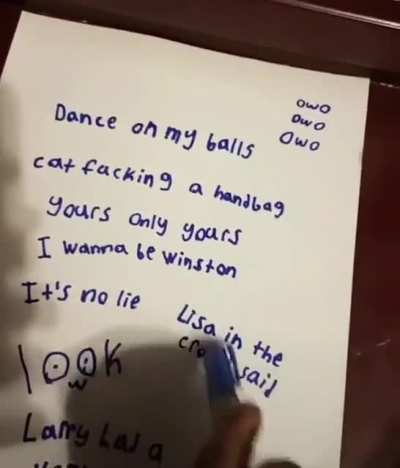 owo
owo
owo
Dance on my balls
cat facking a handbag
yours only yours
I wanna be winston
It's no lie
Lisa in the
said
look
w
Larry